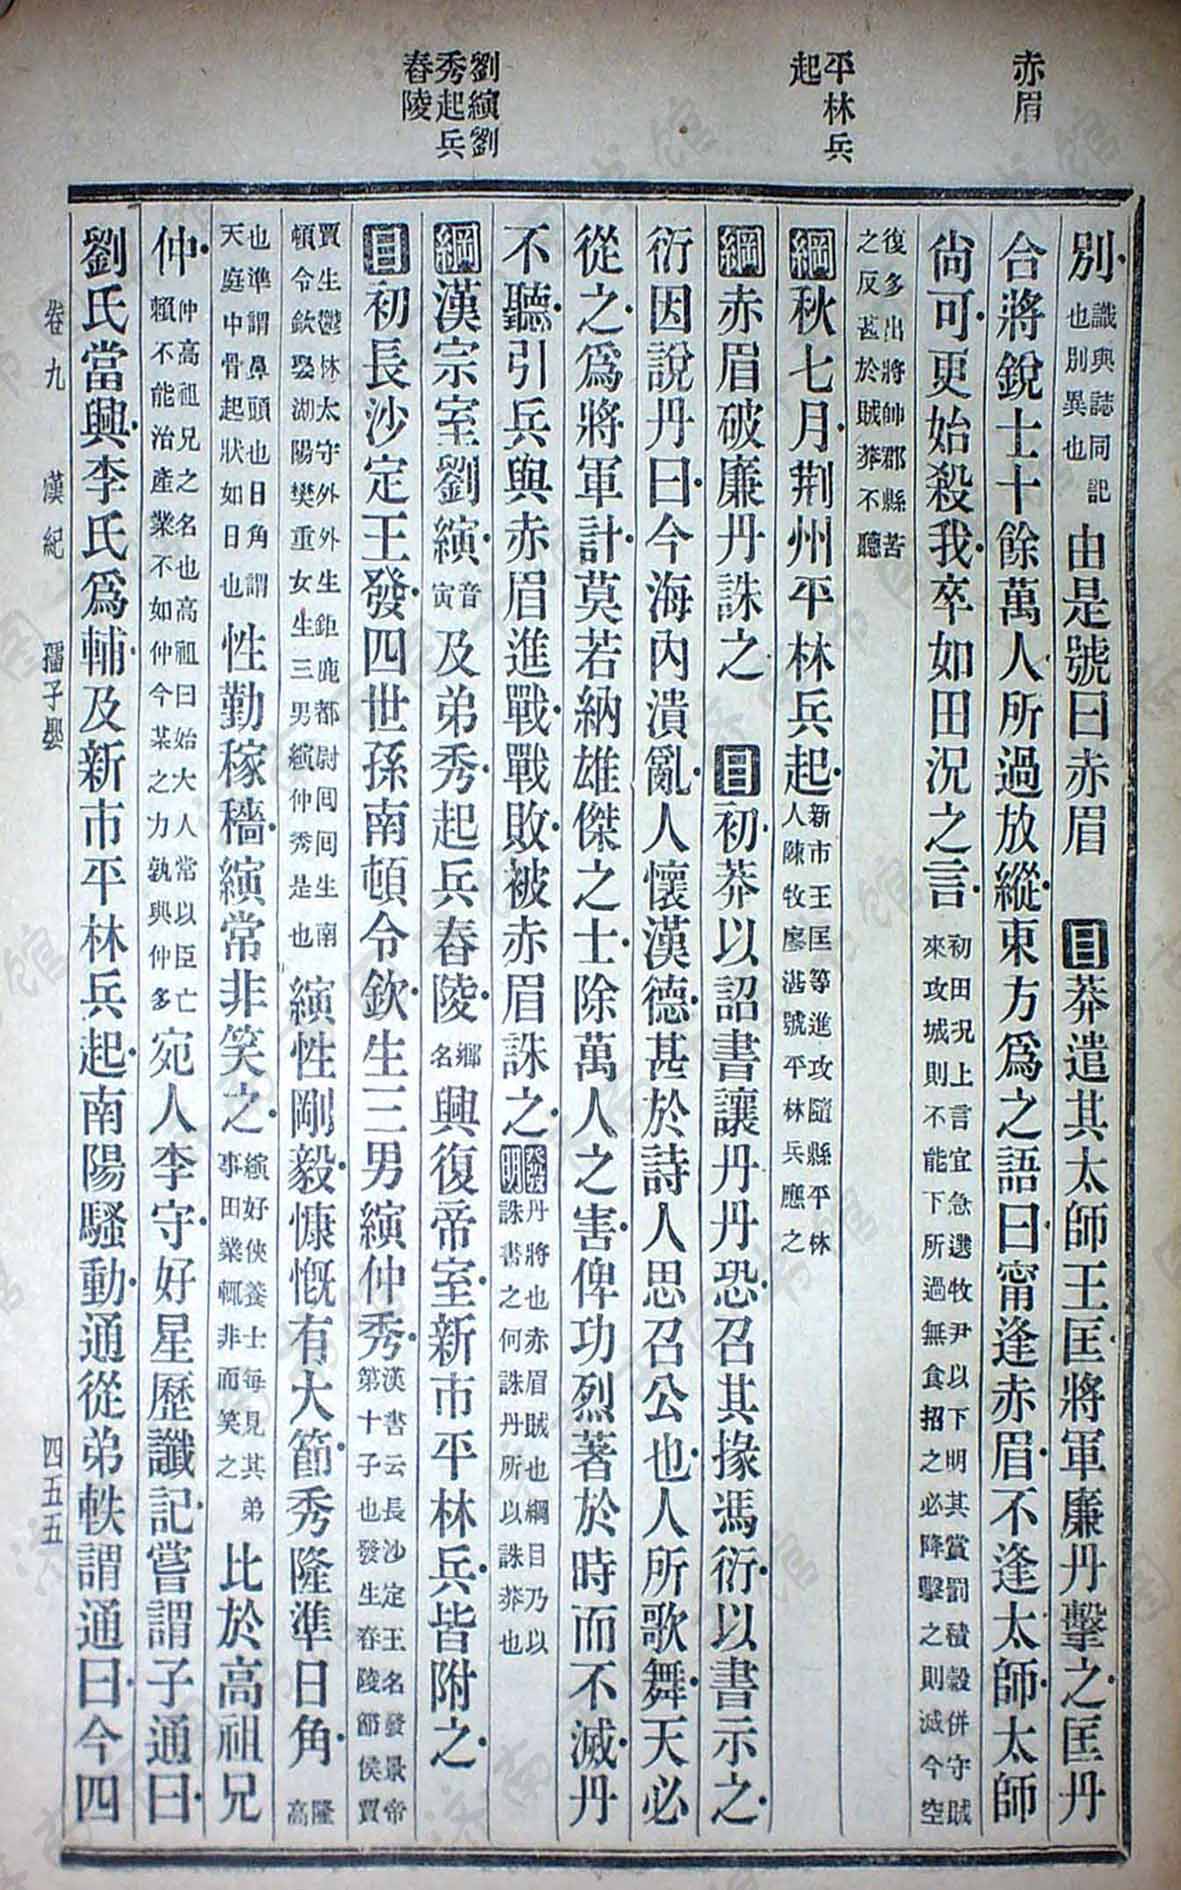 赤眉
平林兵
起
劉縯劉
秀起兵
舂陵
別識與誌同記也別異也由是號曰赤眉 目莽遣其太師王匡將軍廉丹擊之匡丹
合將銳士十餘萬人所過放縱東方爲之語曰甯逢赤眉不逢太師太師
尙可更始殺我卒如田況之言初田況上言宜急選牧尹以下明其賞罰積穀併守賊來攻城則不能下所過無食招之必降擊之則滅今空
復多出將帥郡縣苦之反甚於賊莽不聽
綱秋七月荆州平林兵起新市王匡等進攻隨縣平林人陳牧廖湛號平林兵應之
綱赤眉破廉丹誅之 目初莽以詔書讓丹丹恐召其掾馮衍以書示之
衍因說丹曰今海內潰亂人懷漢德甚於詩人思召公也人所歌舞天必
從之爲將軍計莫若納雄傑之士除萬人之害俾功烈著於時而不滅丹
不聽引兵與赤眉進戰戰敗被赤眉誅之發明丹將也赤眉賊也綱目乃以誅書之何誅丹所以誅莽也
綱漢宗室劉縯音寅及弟秀起兵舂陵鄉名興復帝室新市平林兵皆附之
目初長沙定王發四世孫南頓令欽生三男縯仲秀漢書云長沙定王名發景帝第十子也發生舂陵節侯買
買生鬱林太守外外生鉅鹿都尉囘囘生南頓令欽娶湖陽樊重女生三男縯仲秀是也縯性剛毅慷慨有大節秀隆準日角隆高
也準謂鼻頭也日角謂天庭中骨起狀如日也性勤稼穡縯常非笑之縯好俠養士每見其弟事田業輒非而笑之比於高祖兄
仲仲高祖兄之名也高祖曰始大人常以臣亡賴不能治產業不如仲今某之力孰與仲多宛人李守好星歷讖記嘗謂子通曰
劉氏當興李氏爲輔及新市平林兵起南陽騷動通從弟軼謂通曰今四
卷九 漢紀 孺子嬰 四五五